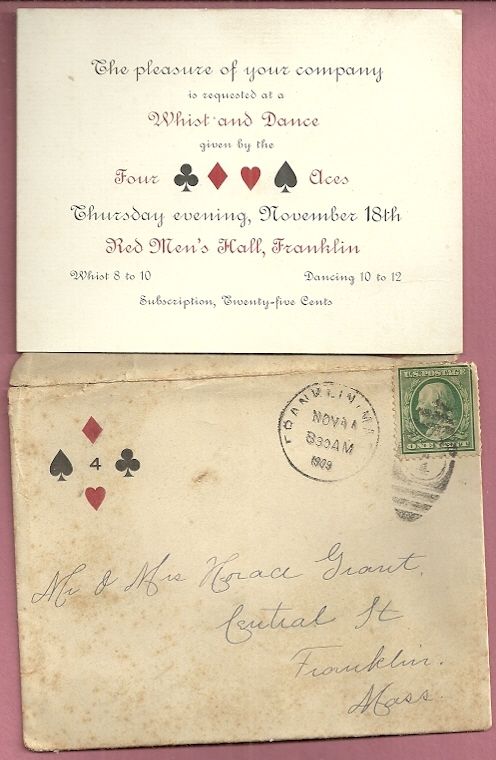 The pleasure of your company
is requested at a
Whist and Dance
given by the
Four ♣ ♦ ♥ ♠ Aces
Thursday evening, November 18th
Red Men's Hall, Franklin
Whist 8 to 10 Dancing 10 to 12
Subscription, Twenty-five Cents
FRANKLIN, MASS.
NOV
8 30 AM
1909
U.S. POSTAGE
ONE CENT
4
Mr & Mrs Horace Grant,
Central St
Franklin.
Mass.